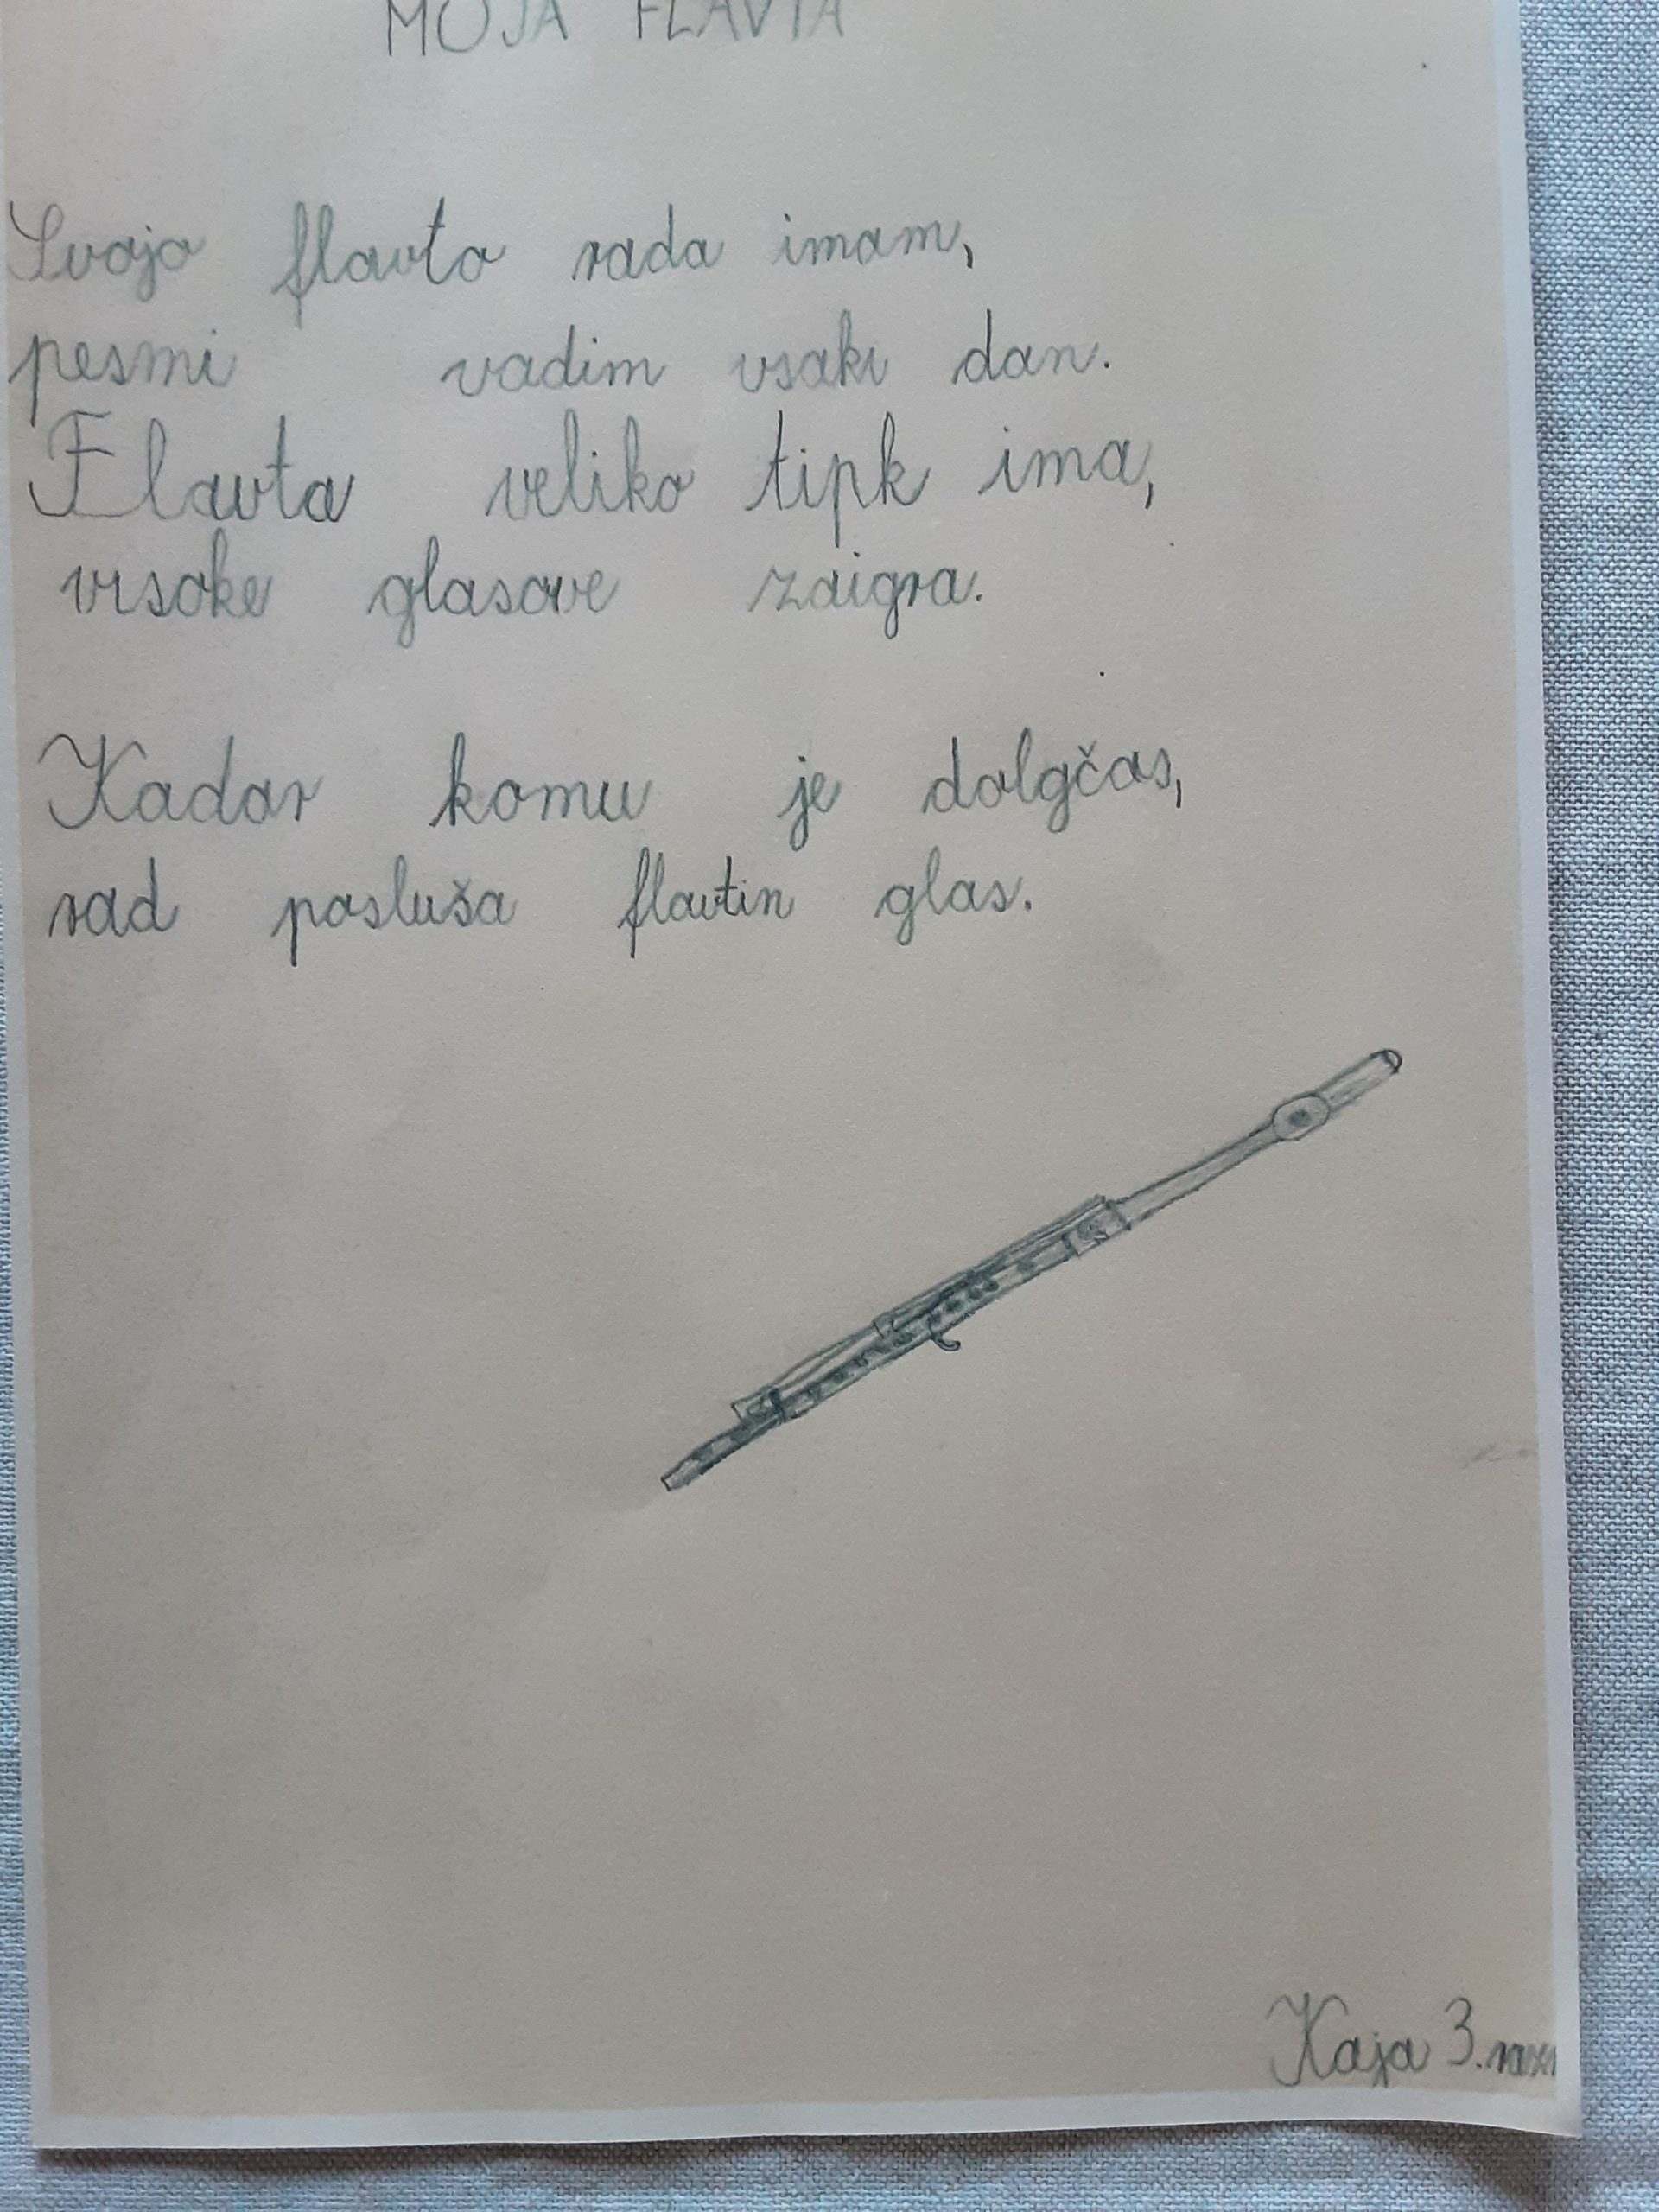 MOJA FLAVTA
Svojo flavto rada imam,
pesmi vadim vsaki dan.
Flavta veliko tipk ima,
visoke glasove zaigra.
Kadar komu je dolgčas,
rad posluša flavtin glas.
Kaja 3.